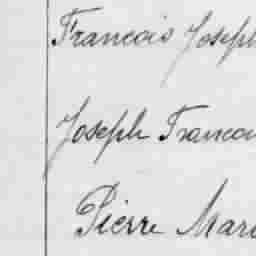 Francois Joseph
Joseph Francoi
Pierre Mari